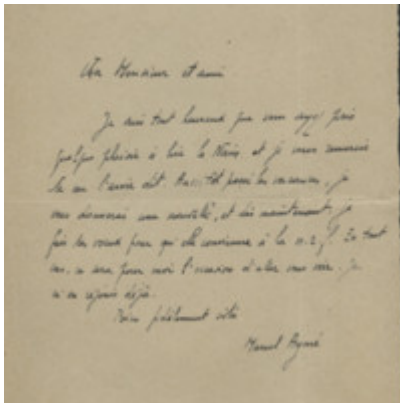 Cher Monsieur et ami
Je suis tout heureux que vous ayez pris
quelque plaisir à lire le Nain et je vous remercie
de me l'avoir dit. Aussitôt passé les vacances, je
vous donnerai une nouvelle, et dès maintenant, je
fais des vœux pour qu'elle convienne à la n.r.f. En tout
cas, ce sera pour moi l'occasion d'aller vous voir. Je
m'en réjouis déjà.
fidèlement vôtre
Marcel Aymé